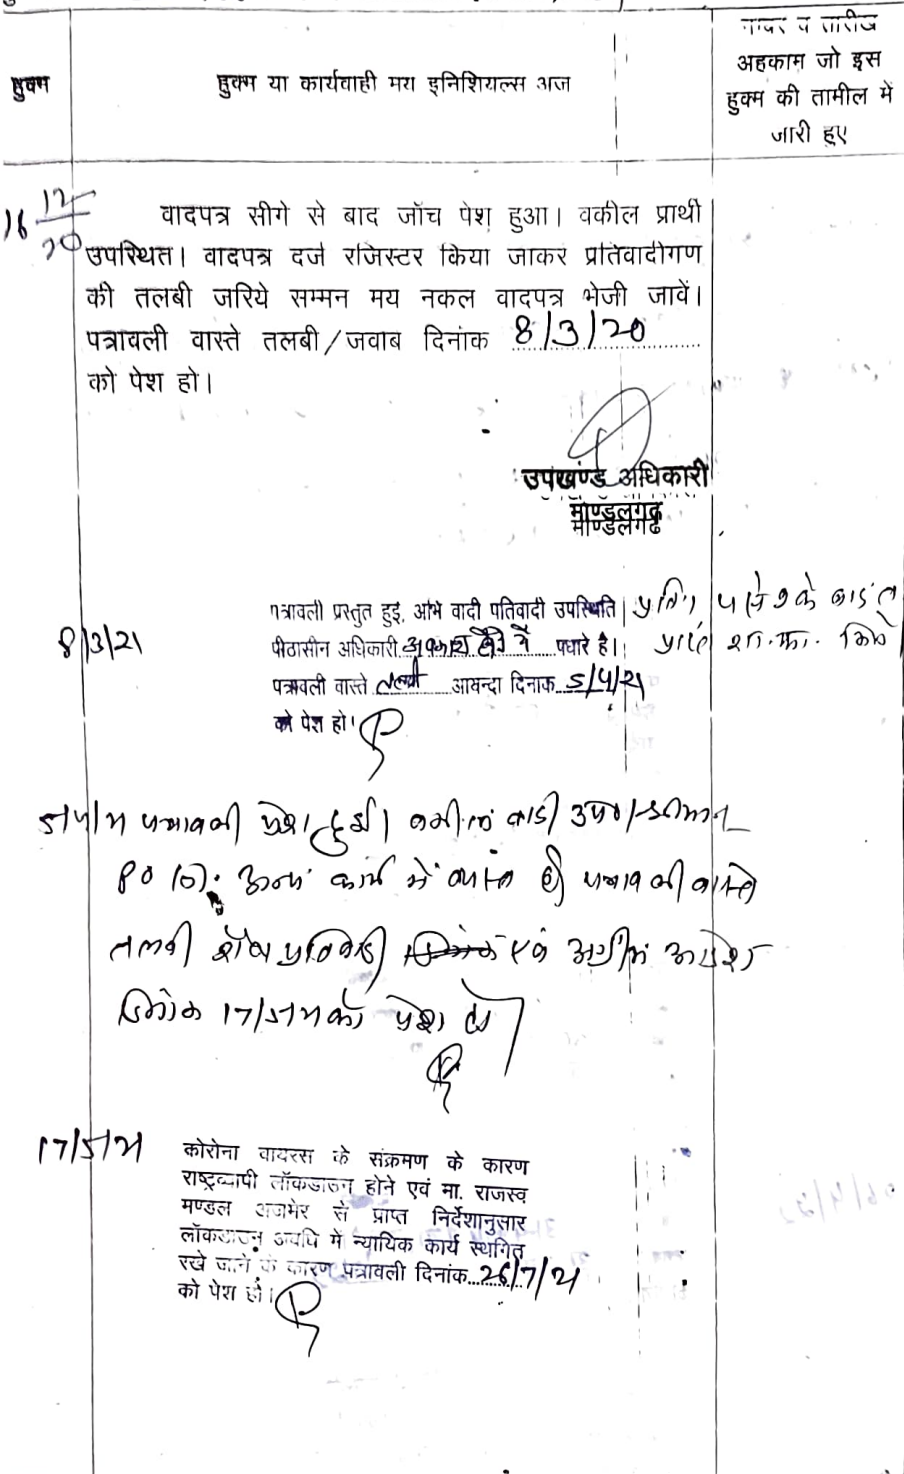 हुक्म
हुक्म या कार्यवाही मय इनिशियल्स अज
नम्बर व तारीख
अहकाम जो इस
हुक्म की तामील में
जारी हुए
16 12/20
वादपत्र सीगे से बाद जाँच पेश हुआ। वकील प्रार्थी
उपस्थित। वादपत्र दर्ज रजिस्टर किया जाकर प्रतिवादीगण
की तलबी जरिये सम्मन मय नकल वादपत्र भेजी जावें।
पत्रावली वास्ते तलबी/जवाब दिनांक 8/3/20
को पेश हो।
उपखण्ड अधिकारी
माण्डलगढ़
8/3/21
पत्रावली प्रस्तुत हुई, अभि वादी पतिवादी उपस्थिति
पीठासीन अधिकारी अवकाश होने से पधारे है।
पत्रावली वास्ते तलबी आयन्दा दिनांक 5/4/21
को पेश हो।
5/4/21 पत्रावली पेश हुई। वकील वादी उप0। श्रीमान
P0 (0). अन्य कार्य में व्यस्त है पत्रावली वास्ते
तलबी शेष प्रतिवादी एवं अग्रीम आदेश
दिनांक 17/5/21 को पेश हो
17/5/21
कोरोना वायरस के संक्रमण के कारण
राष्ट्रव्यापी लॉकडाउन होने एवं मा. राजस्व
मण्डल अजमेर से प्राप्त निर्देशानुसार
लॉकडाउन अवधि में न्यायिक कार्य स्थगित
रखे जाने के कारण पत्रावली दिनांक 26/7/21
को पेश हो।